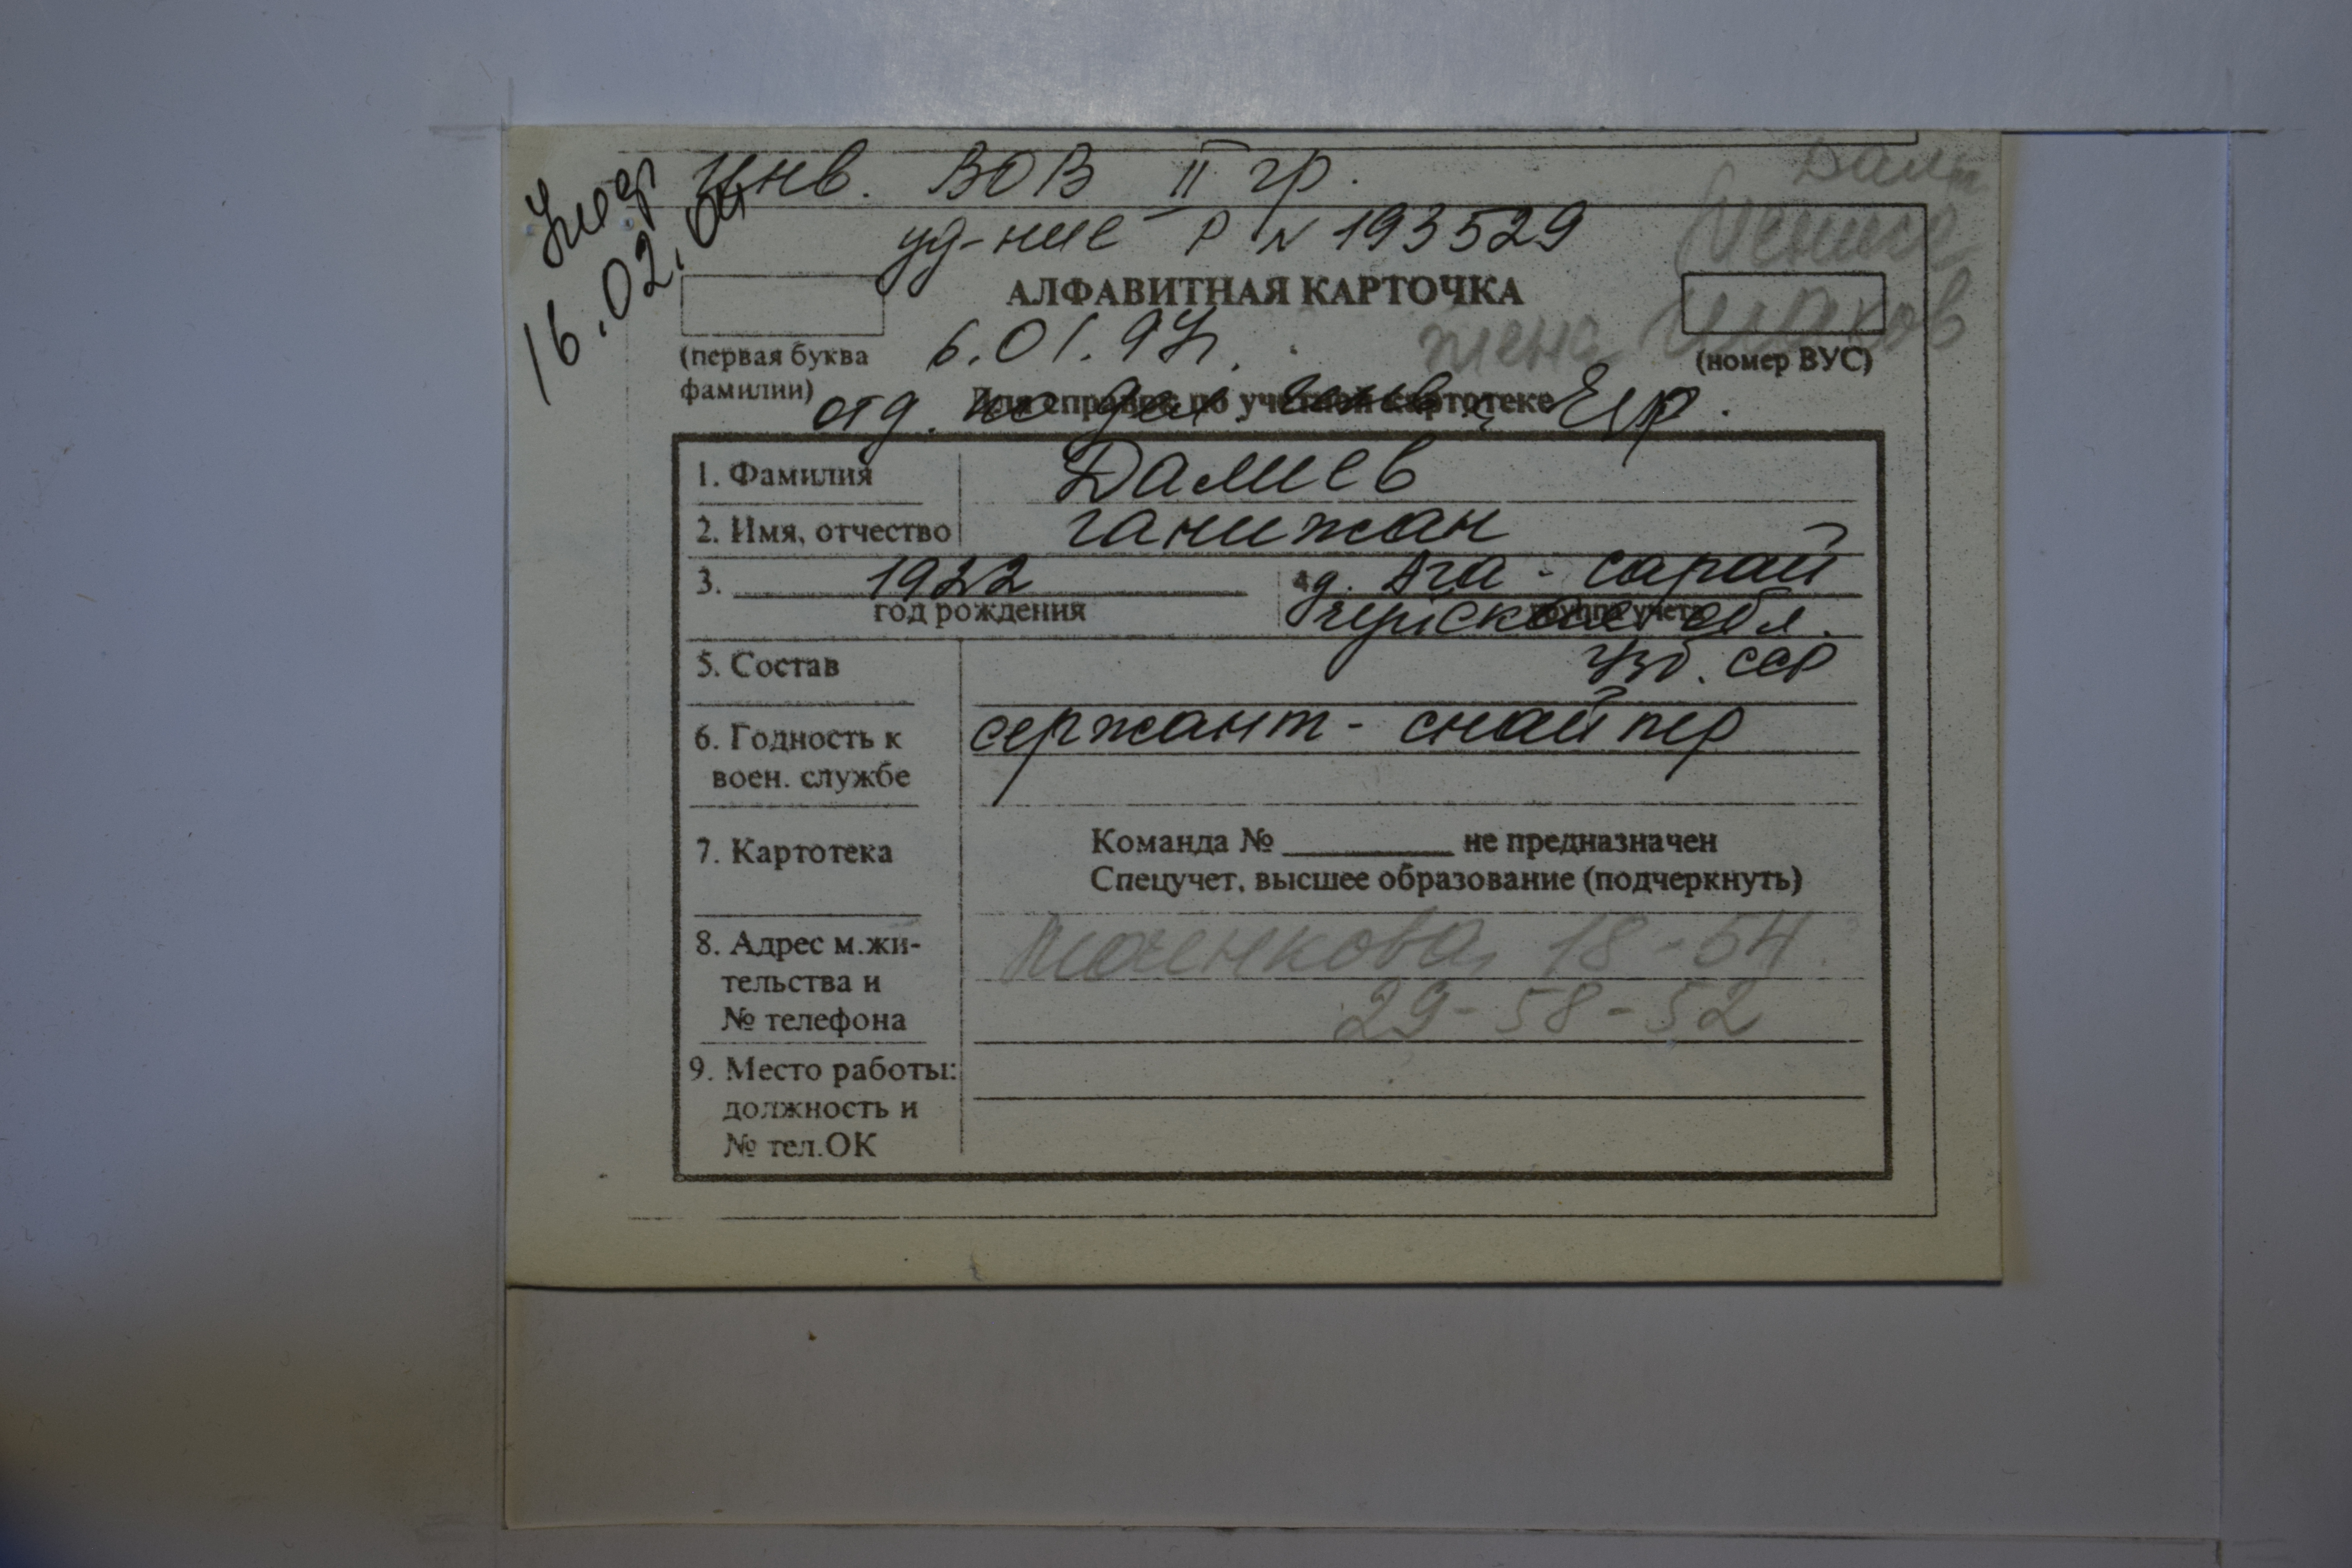 Умер
16.02.04
инв. ВОВ II гр.
уд-ние Р № 193529
АЛФАВИТНАЯ КАРТОЧКА
6.01.97г.
жена
(первая буква
фамилии)
(номер ВУС)
Для справок по учетной картотеке
отд. по дел.
1. Фамилия Далиев
2. Имя, отчество Ганижан
3. 1922 д. Ага-сарай
год рождения группа учета
обл.
5. Состав Узб. ССР
6. Годность к сержант-снайпер
воен. службе
7. Картотека Команда № не предназначен
Спецучет, высшее образование (подчеркнуть)
8. Адрес м.жи- 18-54
тельства и
№ телефона 29-58-52
9. Место работы:
должность и
№ тел.ОК